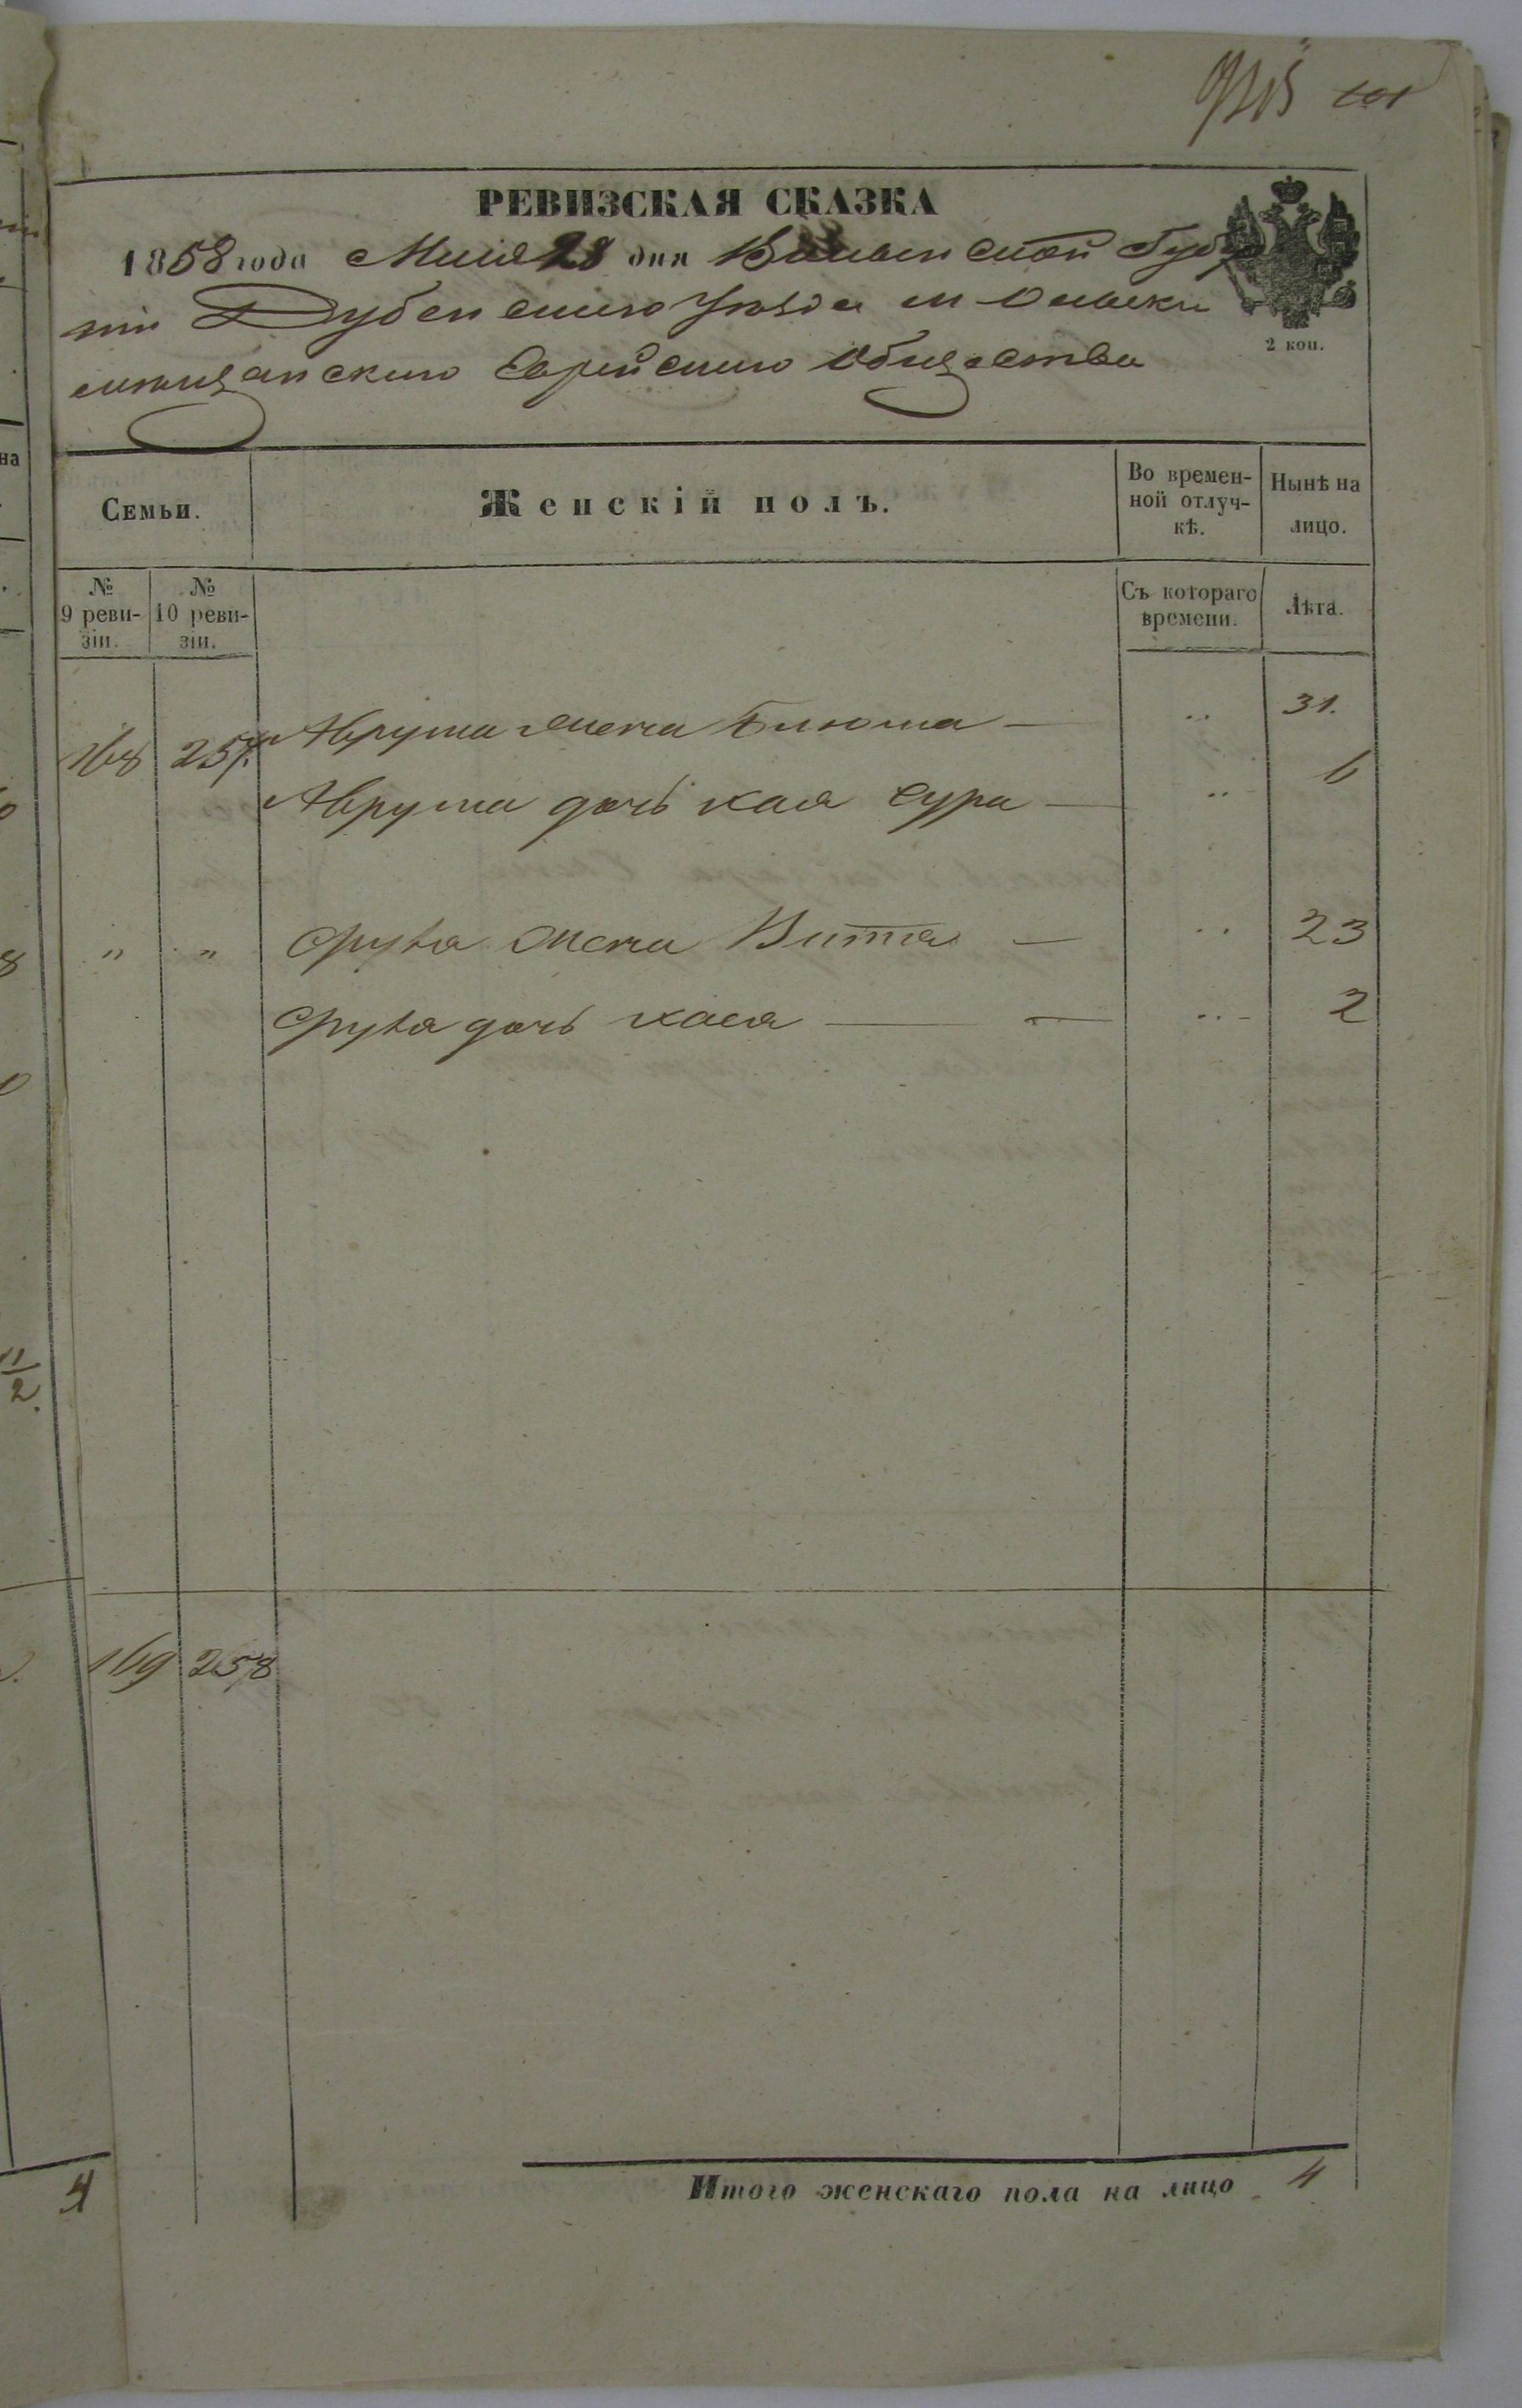 РЕВИЗСКАЯ СКАЗКА
1858 года Мая 28 дня Волынской Губер
нiи Дубенскаго Уѣзда м Олыки
мѣщанскаго Еврейскаго Общества
2 коп.
Семьи.
Женскiй полъ.
Во времен-
ной отлуч-
кѣ.
Нынѣ на
лицо.
№
9 реви-
зiи.
№
10 реви-
зiи.
Съ котораго
времени.
Лѣта.
168 257. жена Блюма — 31.
дочь Хая Сура — 6
„ „ жена Вита — 23
дочь Хася — 2
169 258
Итого женскаго пола на лицо 4
4